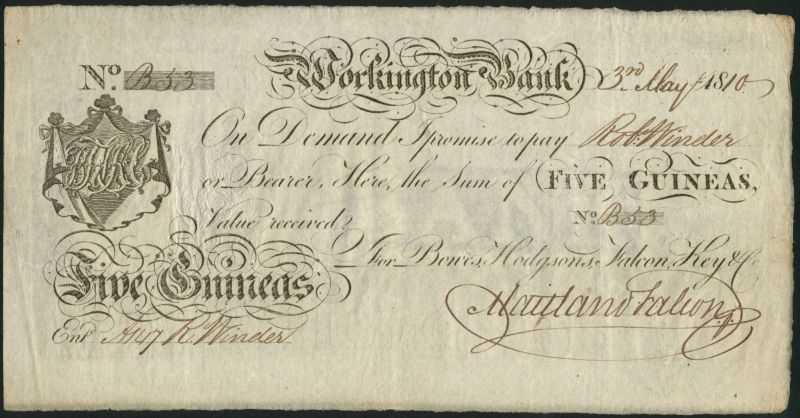 No. B53 Workington Bank 3rd May 1810
On Demand I promise to pay Robt. Winder
or Bearer, Here, the Sum of FIVE GUINEAS,
Value received No. B53
For Bowes, Hodgsons, Falcon, Key & Co.
Five Guineas
Maitland Falcon
Entd. R. Winder